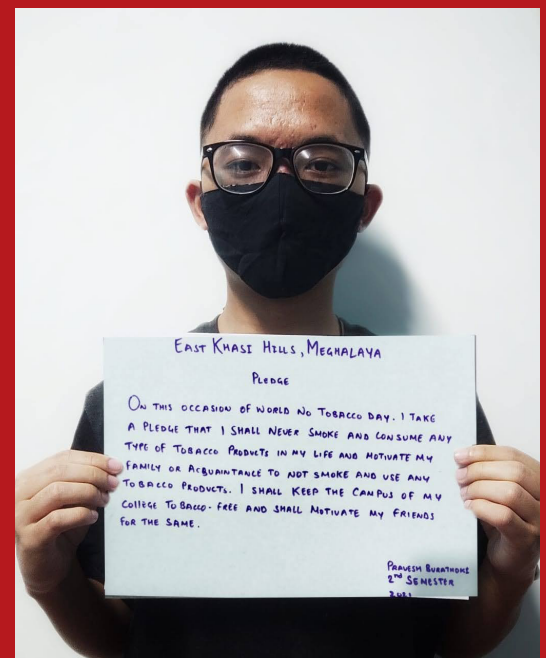 EAST KHASI HILLS, MEGHALAYA
PLEDGE
ON THIS OCCASION OF WORLD NO TOBACCO DAY. I TAKE
A PLEDGE THAT I SHALL NEVER SMOKE AND CONSUME ANY
TYPE OF TOBACCO PRODUCTS IN MY LIFE AND MOTIVATE MY
FAMILY OR ACQUAINTANCE TO NOT SMOKE AND USE ANY
TOBACCO PRODUCTS. I SHALL KEEP THE CAMPUS OF MY
COLLEGE TOBACCO-FREE AND SHALL MOTIVATE MY FRIENDS
FOR THE SAME.
PRAVESH BURATHOKI
2nd SEMESTER
2021